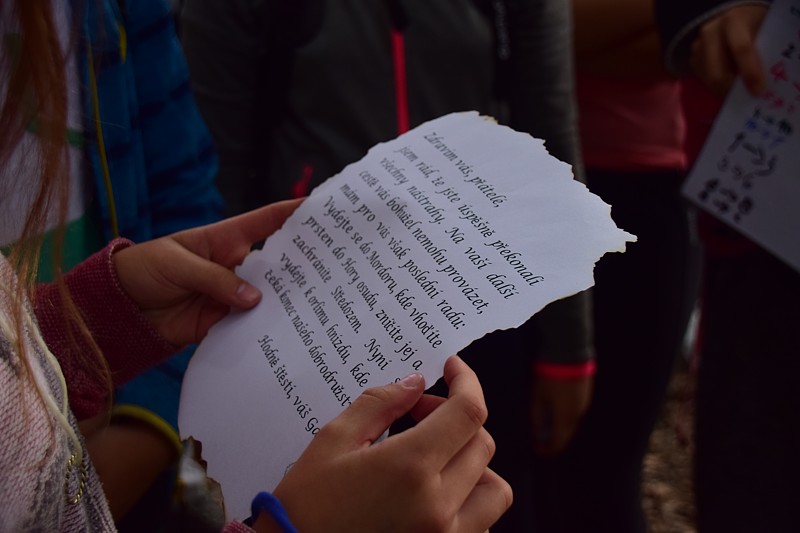 Zdravím vás, přátelé,
jsem rád, že jste úspěšně překonali
všechny nástrahy. Na vaší další
cestě vás bohužel nemohu provázet,
mám pro vás však poslední radu:
Vydejte se do Mordoru, kde vhodíte
prsten do Hory osudu, zničíte jej a
zachráníte Středozem. Nyní
vydejte k orlímu hnízdu, kde
čeká konec našeho dobrodružst
Hodně štěstí, váš Ga